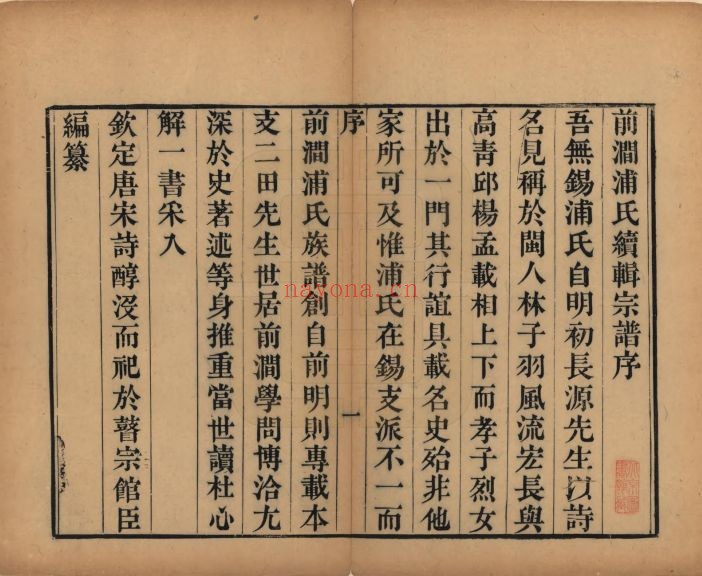 前澗浦氏續輯宗譜序
吾無錫浦氏自明初長源先生以詩
名見稱於閩人林子羽風流宏長與
高青邱楊孟載相上下而孝子烈女
出於一門其行誼具載名史殆非他
家所可及惟浦氏在錫支派不一而
序
一
前澗浦氏族譜創自前明則專載本
支二田先生世居前澗學問博洽尤
深於史著述等身推重當世讀杜心
解一書采入
欽定唐宋詩醇沒而祀於瞽宗館臣
編纂
nayona.cn